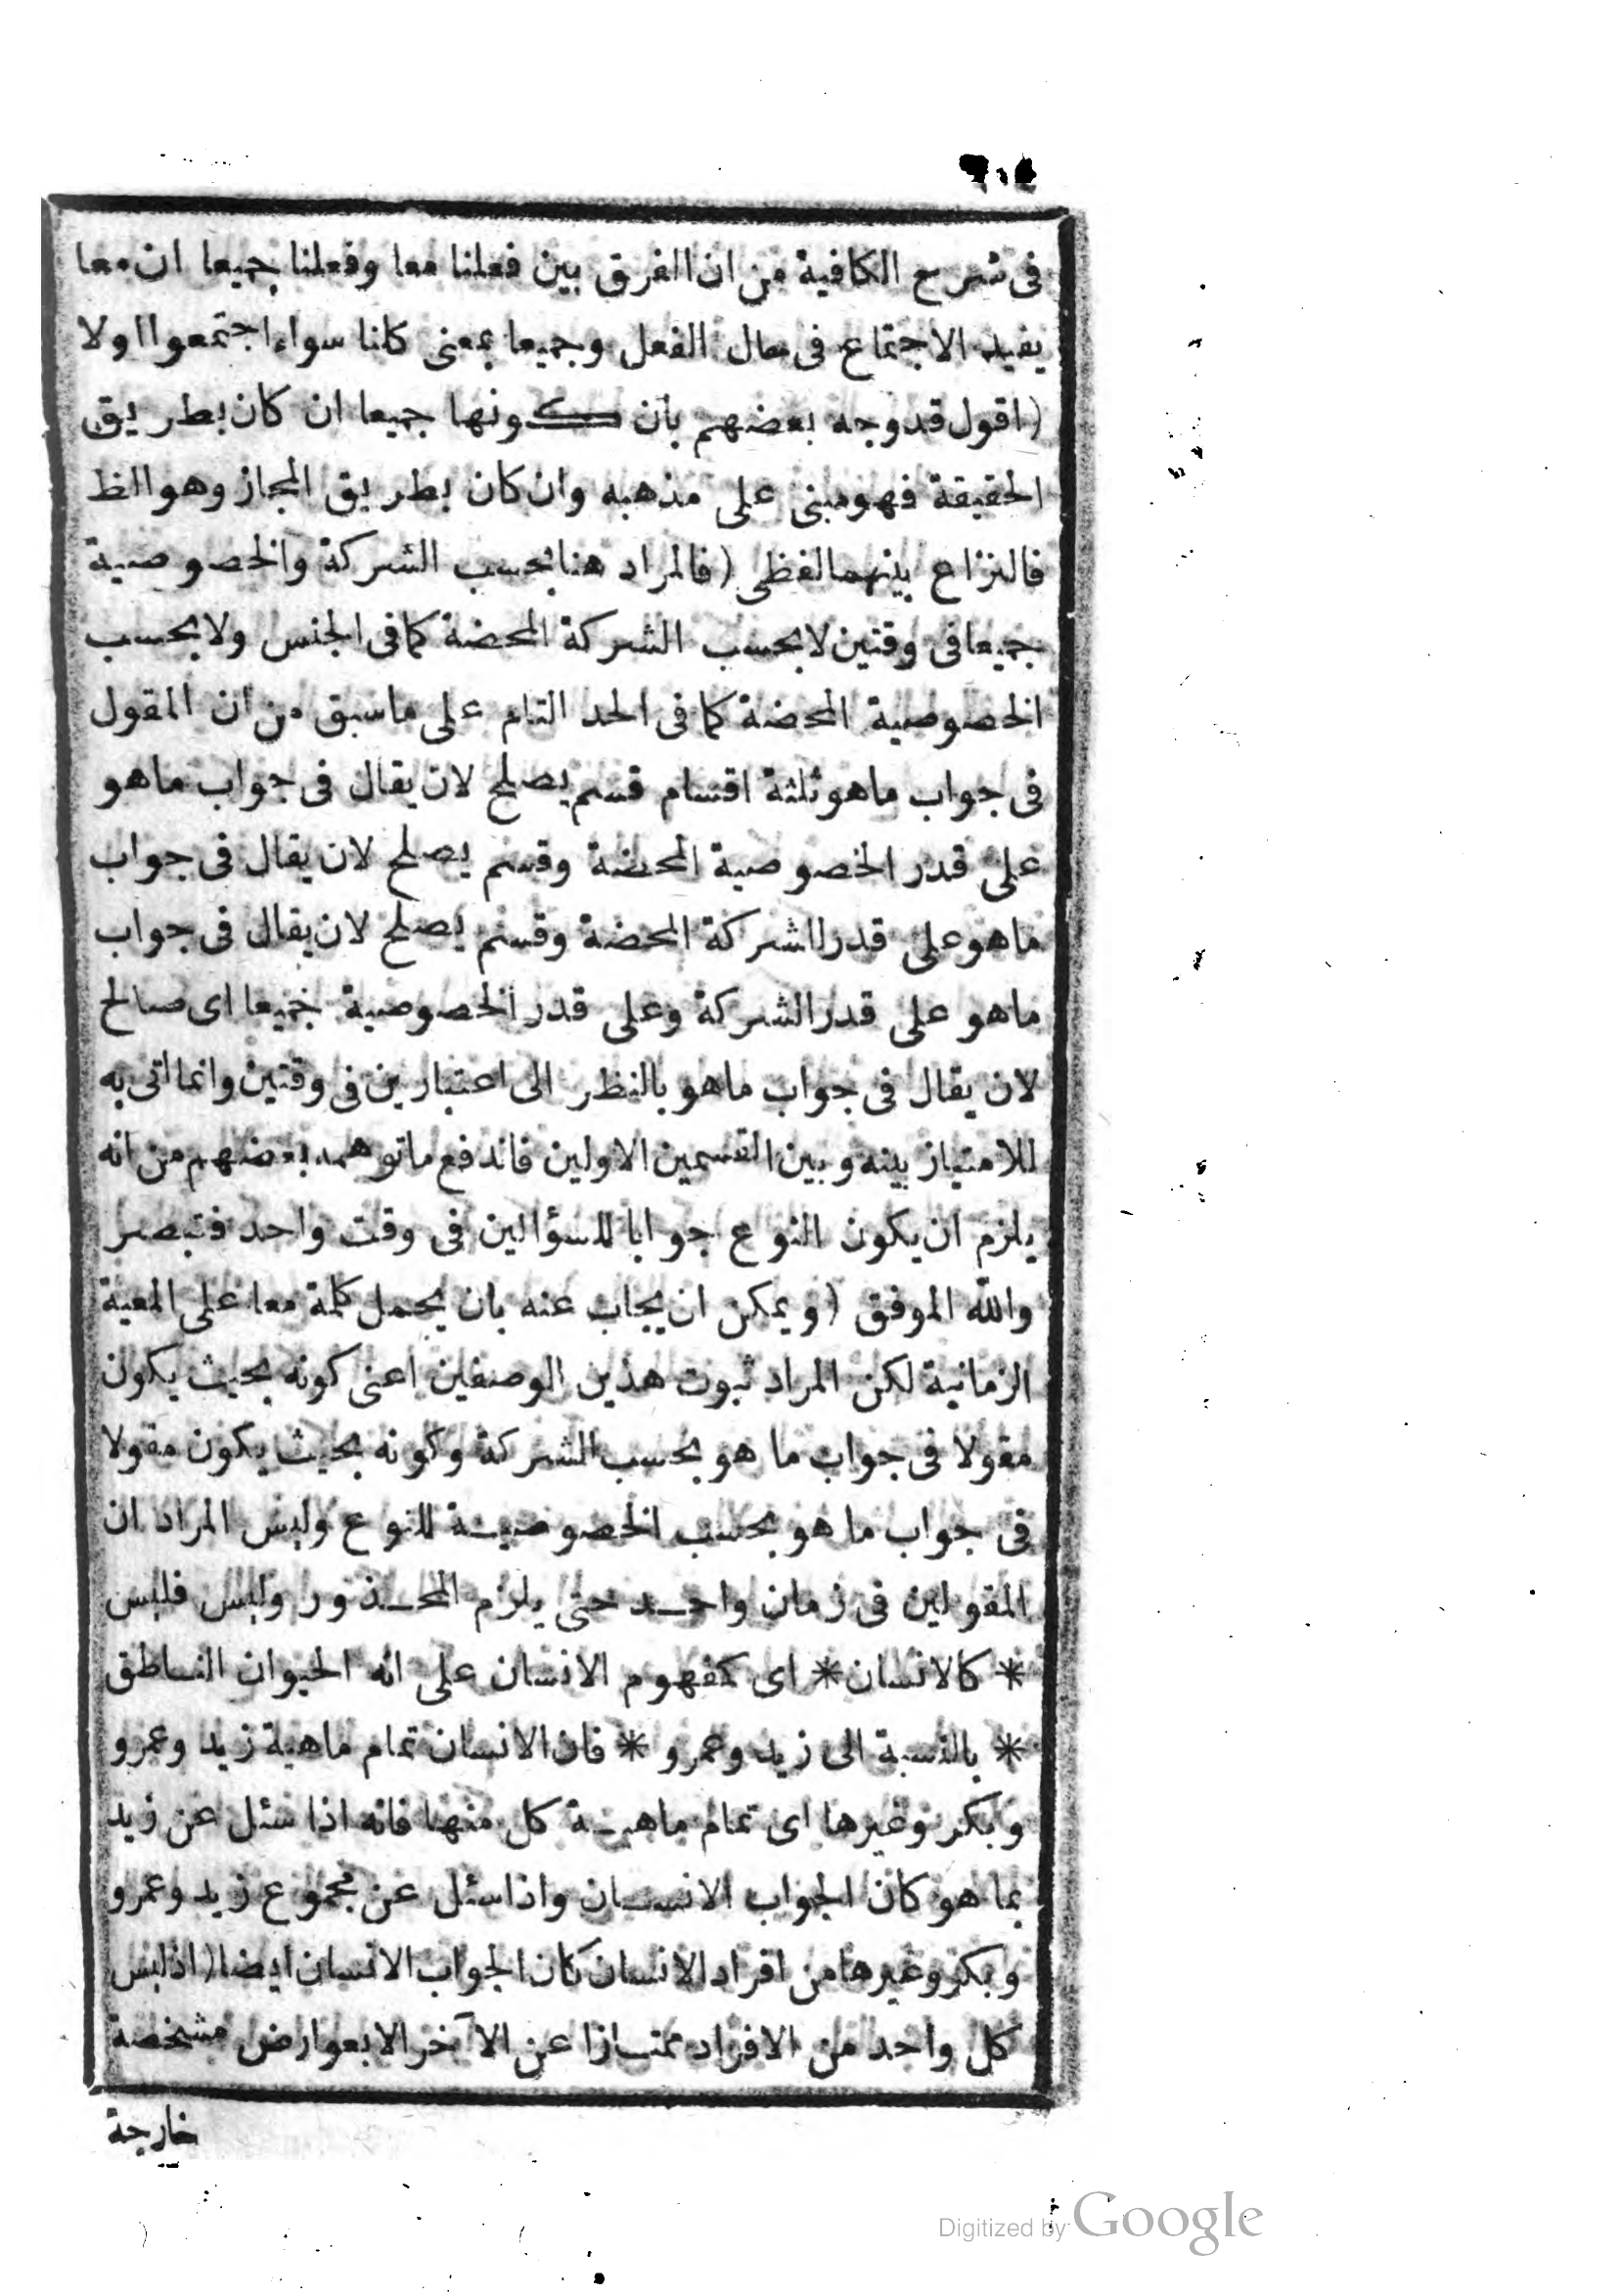 فى شرح الكافية من ان الفرق بين فعلنا معا وفعلنا جميعا ان معا
يفيد الاجتماع فى حال الفعل وجميعا بمعنى كلنا سواء اجتمعوا اولا
(اقول قد وجه بعضهم بان كونها جميعا ان كان بطريق
الحقيقة فهو مبنى على مذهبه وان كان بطريق المجاز وهو الظ
فالنزاع بينهما لفظى (فالمراد هنا بحسب الشركة والخصوصية
جميعا فى وقتين لا بحسب الشركة المحضة كما فى الجنس ولا بحسب
الخصوصية المحضة كما فى الحد التام على ما سبق من ان المقول
فى جواب ما هو ثلثة اقسام قسم يصلح لان يقال فى جواب ما هو
على قدر الخصوصية المحضة وقسم يصلح لان يقال فى جواب
ما هو على قدر الشركة المحضة وقسم يصلح لان يقال فى جواب
ما هو على قدر الشركة وعلى قدر الخصوصية جميعا اى صالح
لان يقال فى جواب ما هو بالنظر الى اعتبارين فى وقتين وانما اتى به
للامتياز بينه وبين القسمين الاولين فاندفع ما توهمه بعضهم من انه
يلزم ان يكون النوع جوابا للسؤالين فى وقت واحد فتبصر
والله الموفق (ويمكن ان يجاب عنه بان يحمل كلمة معا على المعية
الزمانية لكن المراد ثبوت هذين الوصفين اعنى كونه بحيث يكون
مقولا فى جواب ما هو بحسب الشركة وكونه بحيث يكون مقولا
فى جواب ما هو بحسب الخصوصية للنوع وليس المراد ان
المقولين فى زمان واحد حتى يلزم المحذور وليس فليس
* كالانسان * اى كمفهوم الانسان على انه الحيوان الناطق
* بالنسبة الى زيد وعمرو * فان الانسان تمام ماهية زيد وعمرو
وبكر وغيرها اى تمام ماهية كل منها فانه اذا سئل عن زيد
بما هو كان الجواب الانسان واذا سئل عن مجموع زيد وعمرو
وبكر وغيرها من افراد الانسان كان الجواب الانسان ايضا (اذ ليس
كل واحد من الافراد ممتازا عن الآخر الا بعوارض مشخصة
خارجة
Digitized by Google